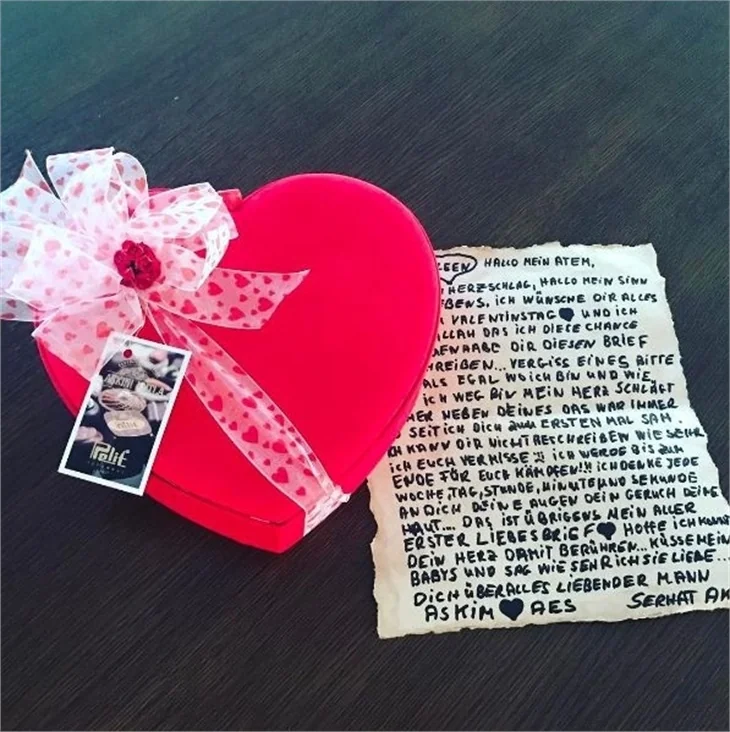 HALLO MEIN ATEM,
HERZSCHLAG, HALLO MEIN SINN
ICH WÜNSCHE DIR ALLES
VALENTINSTAG ♥ UND ICH
DAS ICH DIESE CHANCE
DIR DIESEN BRIEF
VERGISS EINES BITTE
EGAL WO ICH BIN UND WIE
ICH WEG BIN MEIN HERZ SCHLÄGT
NEBEN DEINES DAS WAR IMMER
SEIT ICH DICH ZUM ERSTEN MAL SAH.
KANN DIR NICHT BESCHREIBEN WIE SEHR
ICH EUCH VERMISSE !! ICH WERDE BIS ZUM
ENDE FÜR EUCH KÄMPFEN!!! ICH DENKE JEDE
WOCHE, TAG, STUNDE, MINUTE UND SEKUNDE
AN DICH DEINE AUGEN DEIN GERUCH DEINE
HAUT... DAS IST ÜBRIGENS MEIN ALLER
ERSTER LIEBESBRIEF ♥ HOFFE ICH KONNTE
DEIN HERZ DAMIT BERÜHREN... KÜSSE MEIN
BABYS UND SAG WIE SEHR ICH SIE LIEBE...
DICH ÜBERALLES LIEBENDER MANN
ASKIM ♥ AES SERHAT AK
Pelit